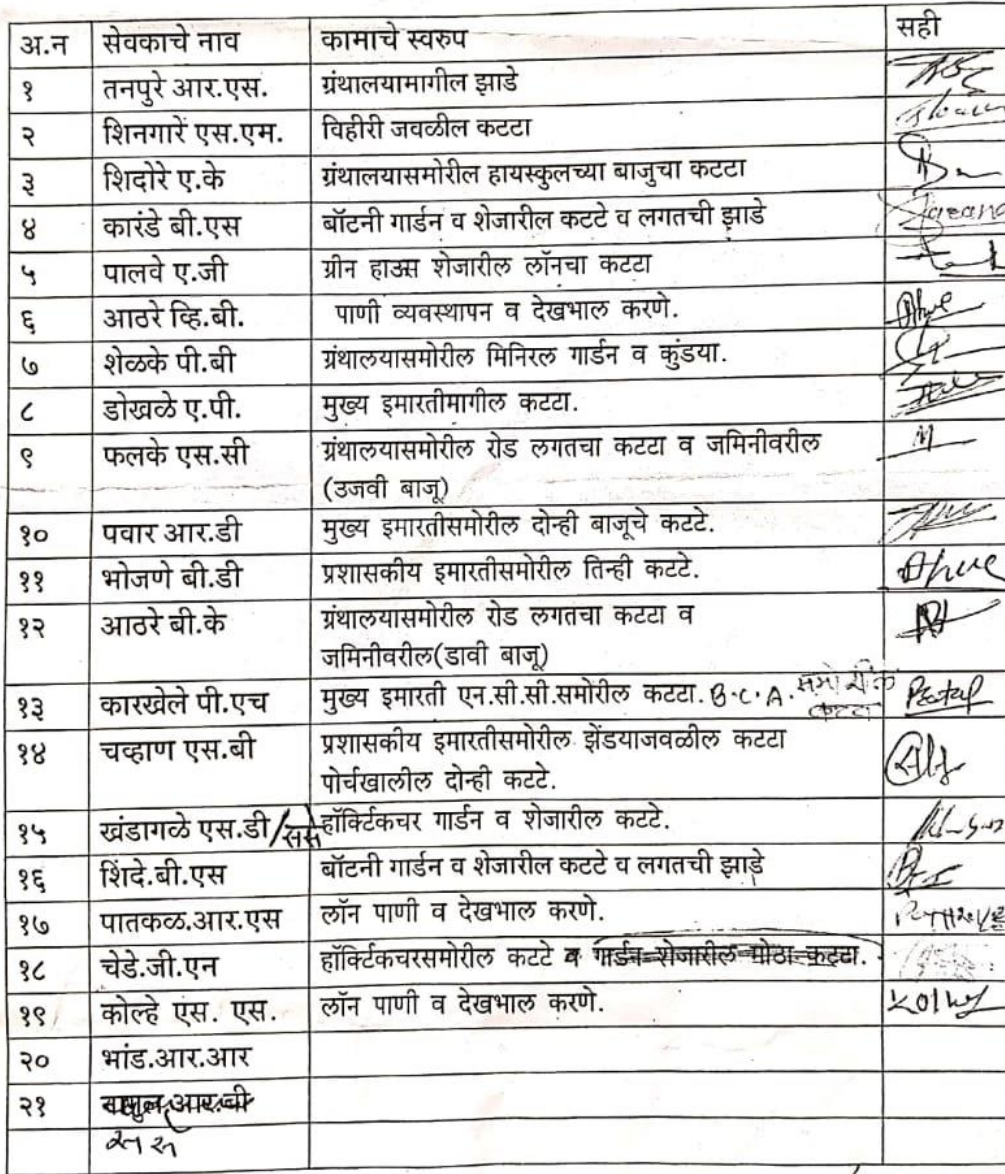 अ.न सेवकाचे नाव कामाचे स्वरुप सही
१ तनपुरे आर.एस. ग्रंथालयामागील झाडे
२ शिनगारें एस.एम. विहीरी जवळील कटटा
३ शिदोरे ए.के ग्रंथालयासमोरील हायस्कुलच्या बाजुचा कटटा
४ कारंडे बी.एस बॉटनी गार्डन व शेजारील कटटे व लगतची झाडे
५ पालवे ए.जी ग्रीन हाऊस शेजारील लॉनचा कटटा
६ आठरे व्हि.बी. पाणी व्यवस्थापन व देखभाल करणे.
७ शेळके पी.बी ग्रंथालयासमोरील मिनिरल गार्डन व कुंडया.
८ डोखळे ए.पी. मुख्य इमारतीमागील कटटा.
९ फलके एस.सी ग्रंथालयासमोरील रोड लगतचा कटटा व जमिनीवरील
(उजवी बाजू)
१० पवार आर.डी मुख्य इमारतीसमोरील दोन्ही बाजूचे कटटे.
११ भोजणे बी.डी प्रशासकीय इमारतीसमोरील तिन्ही कटटे.
१२ आठरे बी.के ग्रंथालयासमोरील रोड लगतचा कटटा व
जमिनीवरील(डावी बाजू)
१३ कारखेले पी.एच मुख्य इमारती एन.सी.सी.समोरील कटटा. B.C.A. समोरील
कटटा
१४ चव्हाण एस.बी प्रशासकीय इमारतीसमोरील झेंडयाजवळील कटटा
पोर्चखालील दोन्ही कटटे.
१५ खंडागळे एस.डी/ससे हॉर्क्टिकचर गार्डन व शेजारील कटटे.
१६ शिंदे.बी.एस बॉटनी गार्डन व शेजारील कटटे व लगतची झाडे
१७ पातकळ.आर.एस लॉन पाणी व देखभाल करणे.
१८ चेडे.जी.एन हॉर्क्टिकचरसमोरील कटटे व गार्डन शेजारील मोठा कटटा.
१९ कोल्हे एस. एस. लॉन पाणी व देखभाल करणे. Kolhe
२० भांड.आर.आर
२१ आर.बी